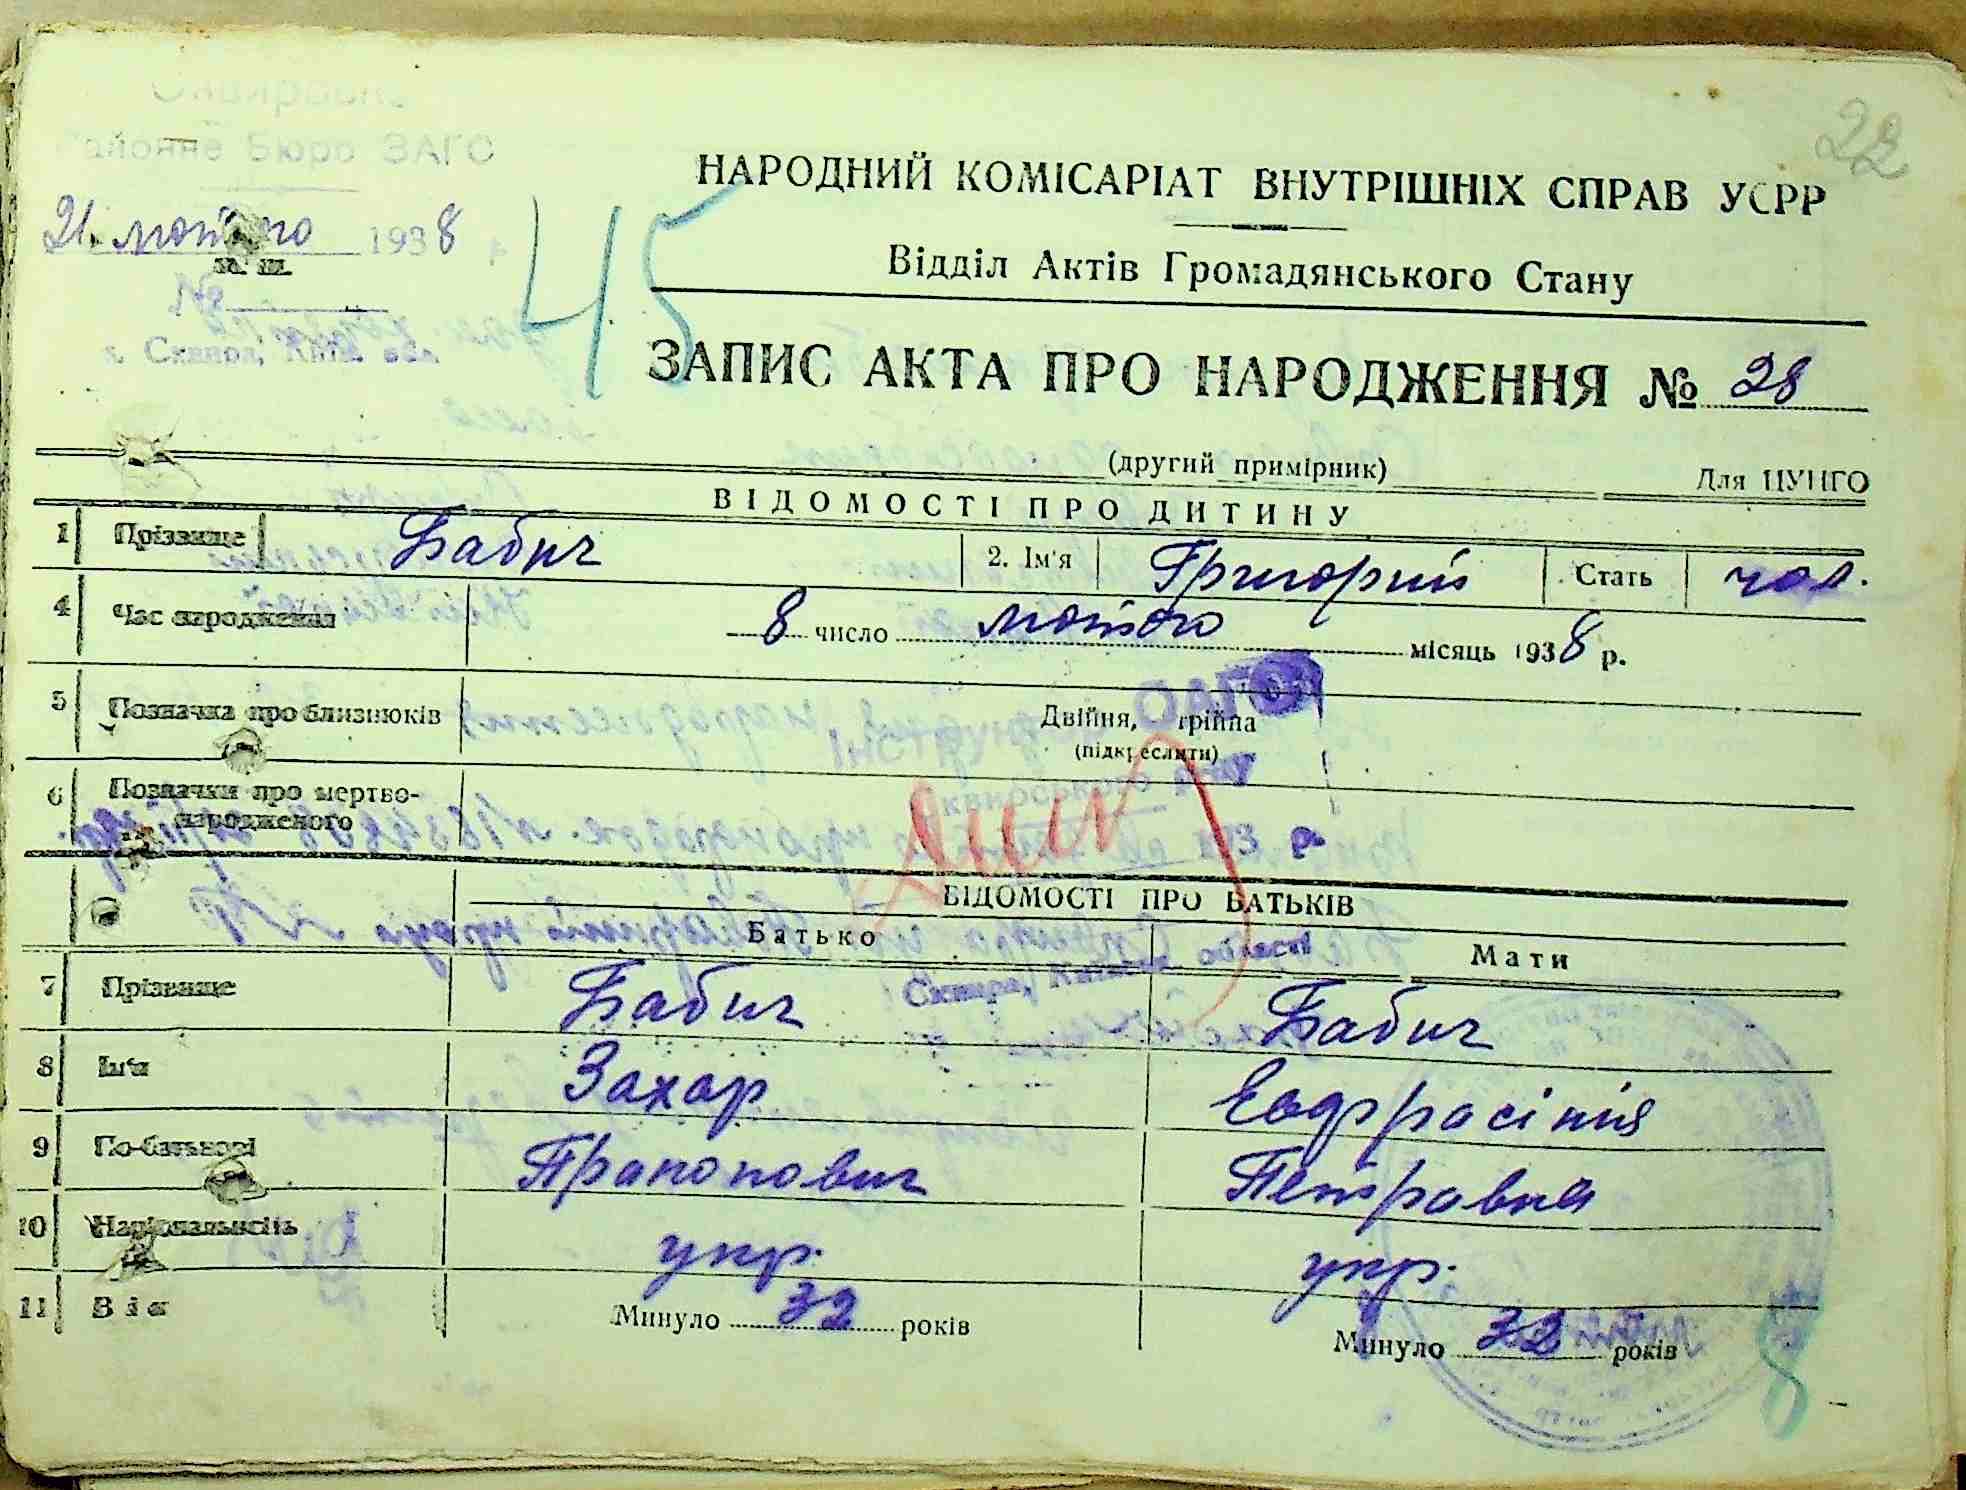 22
Районне Бюро ЗАГС
21 лютого 1938 р
№
м. Сквира, Київ. обл.
45
НАРОДНИЙ КОМІСАРІАТ ВНУТРІШНІХ СПРАВ УСРР
Відділ Актів Громадянського Стану
ЗАПИС АКТА ПРО НАРОДЖЕННЯ № 28
(другий примірник) Для ЦУНГО
ВІДОМОСТІ ПРО ДИТИНУ
1 Прізвище Бабич 2. Ім'я Григорий Стать чол.
4 Час народження 8 число лютого місяць 1938 р.
5 Позначка про близнюків Двійня, трійня
(підкреслити)
6 Позначки про мертво-
народженого
ВІДОМОСТІ ПРО БАТЬКІВ
Батько Мати
Сквира, Київської області
7 Прізвище Бабич Бабич
8 Ім'я Захар Евфрасінія
9 По-батькові Прапопович Петравна
10 Національність укр. укр.
11 Вік Минуло 32 років Минуло 32 років
8